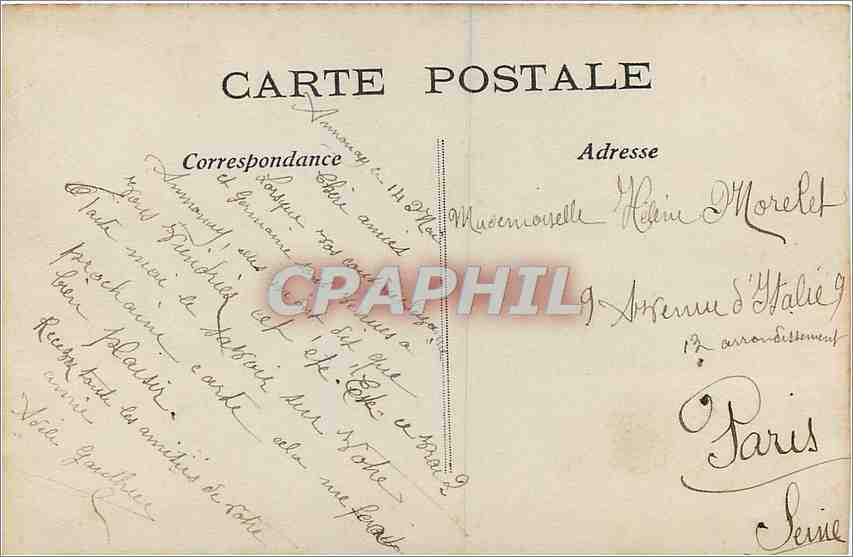 CARTE POSTALE
Correspondance
Adresse
Annonay le 14 Mai
Chère amies
Lorsque vos cousines
et Germaine sont venues à
Annonay, elles m'ont dit que
vous viendriez cet été. Est ce vrai ?
Faite moi le savoir sur votre
prochaine carte cela me ferait
bien plaisir.
Recevez toute les amitiés de votre
amie
Gauthier
Mademoiselle Hélène Morelet
9 Avenue d'Italie 9
13 arrondissement
Paris
Seine
CPAPHIL